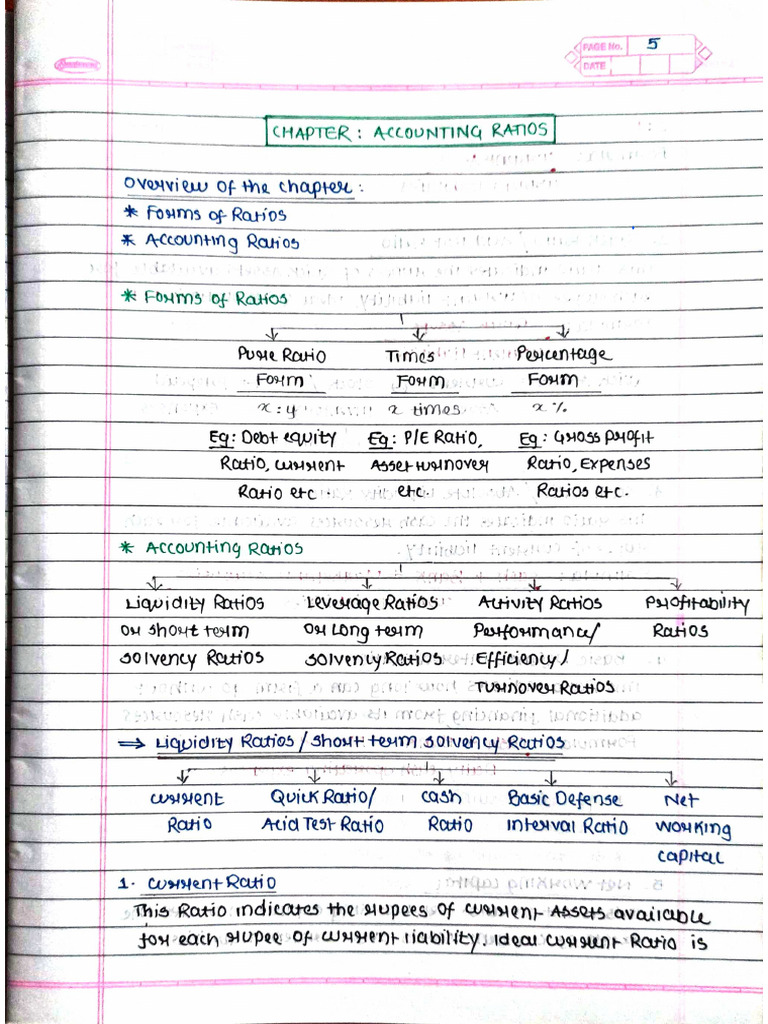 PAGE No. 5
DATE
CHAPTER : ACCOUNTING RATIOS
Overview of the chapter :
* Forms of Ratios
* Accounting Ratios
* Forms of Ratios
Pure Ratio Times Percentage
Form Form Form
x : y x times x %
Eg : Debt equity Eg : P/E Ratio, Eg : Gross profit
Ratio, current Asset turnover Ratio, Expenses
Ratio etc. etc. Ratios etc.
* Accounting Ratios
Liquidity Ratios Leverage Ratios Activity Ratios Profitability
or short term or Long term Performance/ Ratios
solvency Ratios solvency Ratios Efficiency/
Turnover Ratios
⇒ Liquidity Ratios / short term solvency Ratios
current Quick Ratio/ cash Basic Defense Net
Ratio Acid Test Ratio Ratio Interval Ratio working
capital
1. current Ratio
This Ratio indicates the rupees of current Assets available
for each rupee of current liability. Ideal current Ratio is